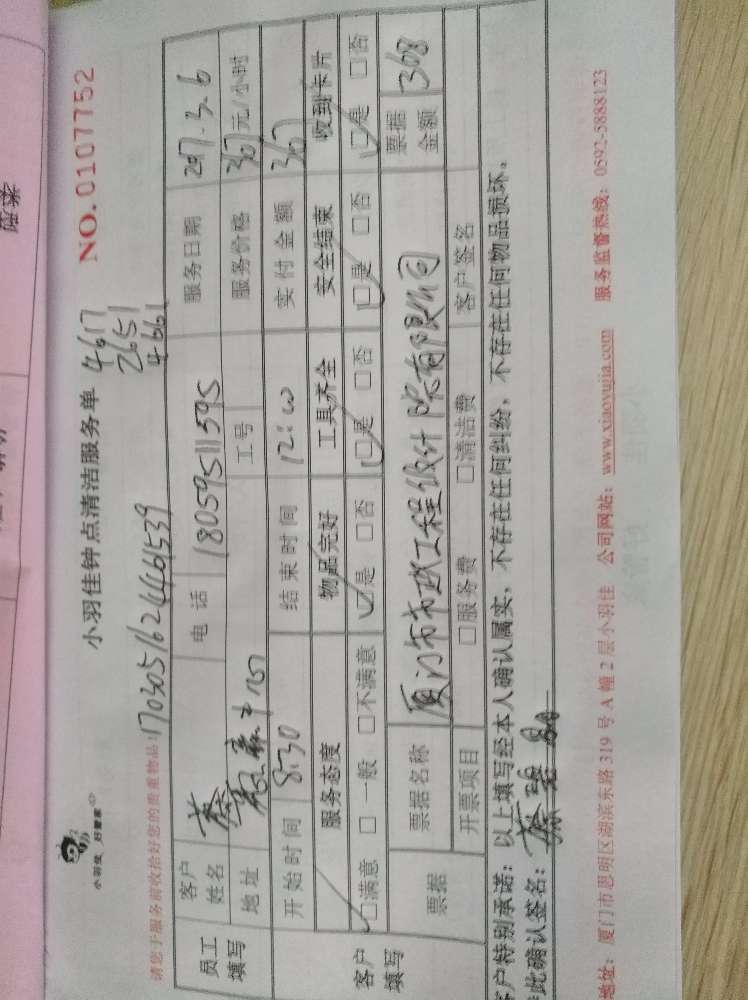 小羽佳 好管家
小羽佳钟点清洁服务单
NO.0107752
4617
2651
4661
请您于服务前收拾好您的贵重物品:
员工填写 客户姓名 蔡 电话 18059511595 服务日期 2017.3.6
地址 工号 服务价格 367元/小时
客户填写 开始时间 8:30 结束时间 12:00 实付金额 367
服务态度 物品完好 工具齐全 安全结束 收到卡片
□满意 □一般 □不满意 □是 □否 □是 □否 □是 □否 □是 □否
票据 票据名称 厦门市市政工程设计院有限公司 票据金额 368
开票项目 □服务费 □清洁费 客户签名
客户特别承诺：以上填写经本人确认属实，不存在任何纠纷，不存在任何物品损坏。
此确认签名：
地址：厦门市思明区湖滨东路 319 号 A 幢 2 层小羽佳 公司网站：www.xiaoyujia.com 服务监督热线：0592-5888123